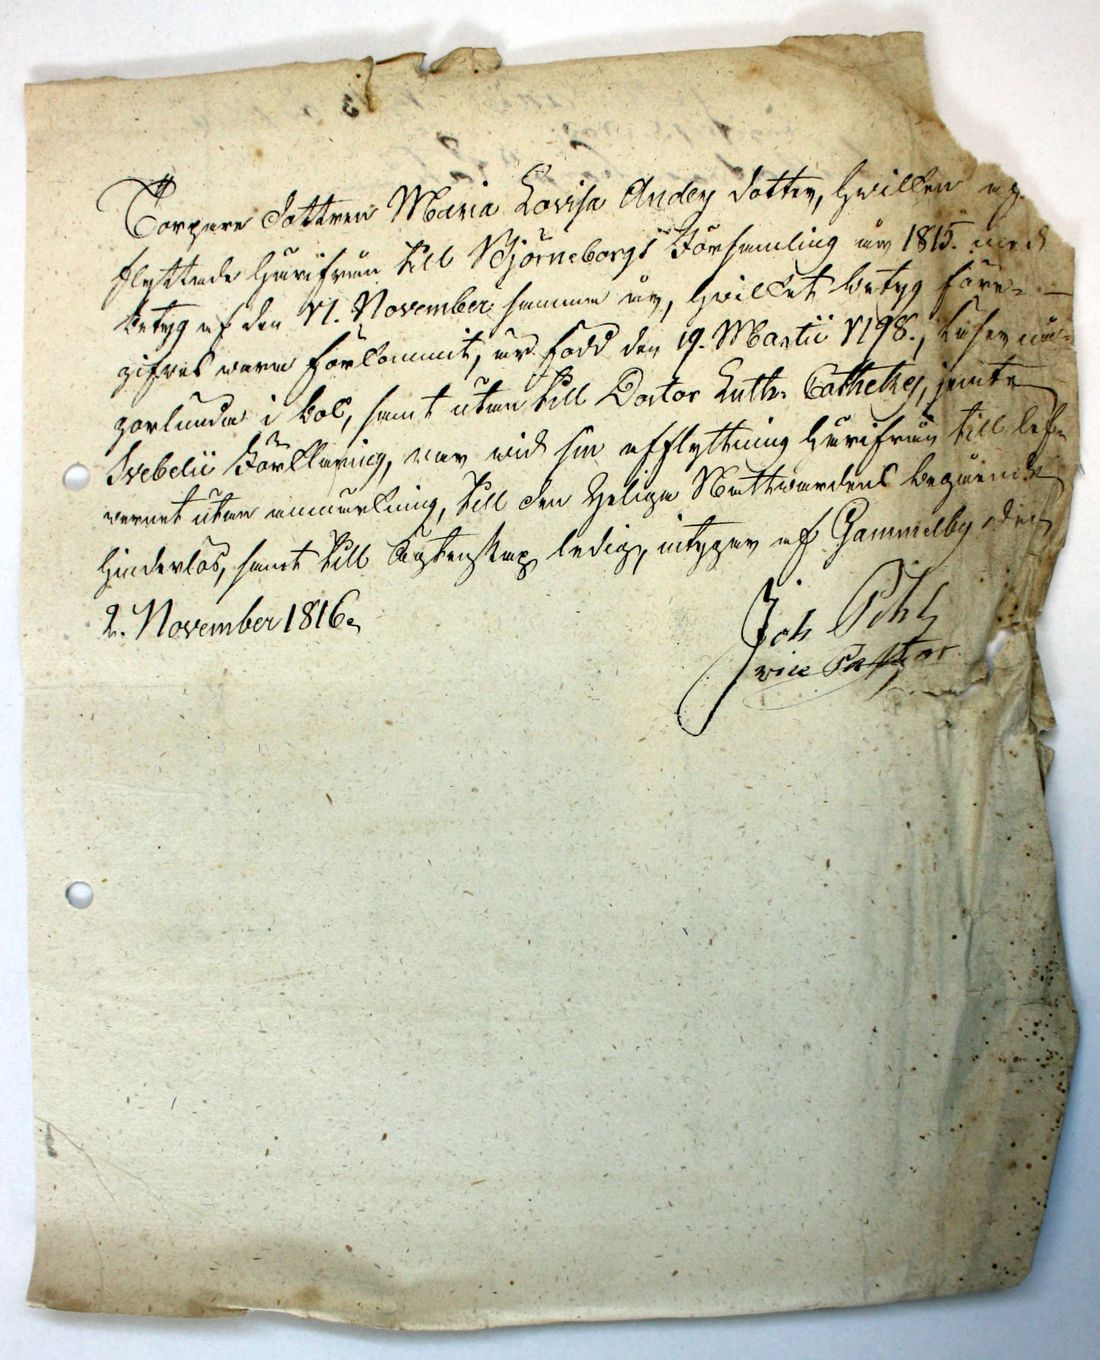 Torpare dottren Maria Lovisa Anders dotter, hvilken
flyttade härifrån till Björneborgs Församling år 1815. med
betyg af den 11. November samma år, hvilket betyg före-
gifves vara förkommit, är född den 19. Martii 1798., läser nå-
gorlunda i bok, samt utan till Doctor Luth. Catheches, jemte
Svebelii Förklaring, var vid sin afflyttning härifrån till lef-
vernet utan anmärkning, till den Helige Nattvardens begående
hinderlös, samt till Ägtenskap ledig, intygar af Gammelby den
2. November 1816.
Joh Pihl
vice Pastor